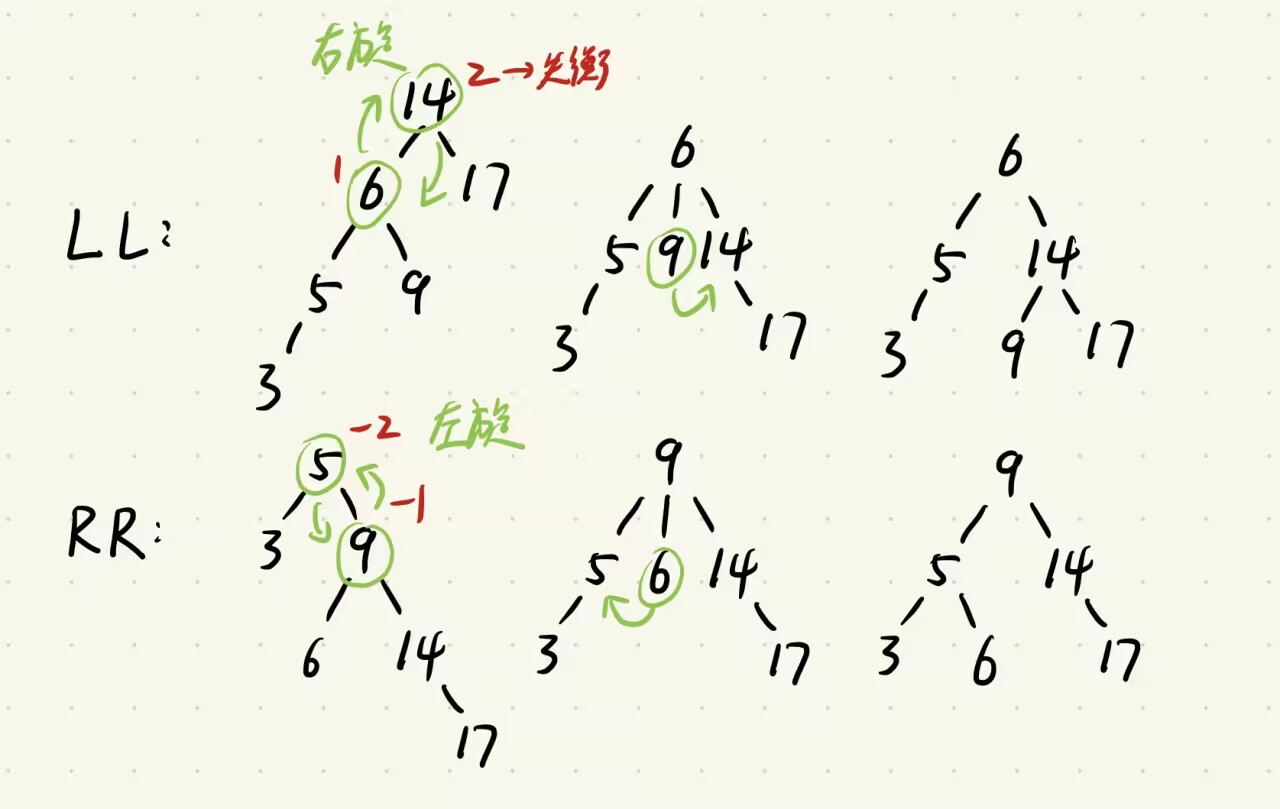 右旋
14 2→失衡
1 6 17
LL:
5 9
3
6
5 9 14
3 17
6
5 14
3 9 17
5 -2 左旋
RR:
3 9 -1
6 14
17
9
5 6 14
3 17
9
5 14
3 6 17